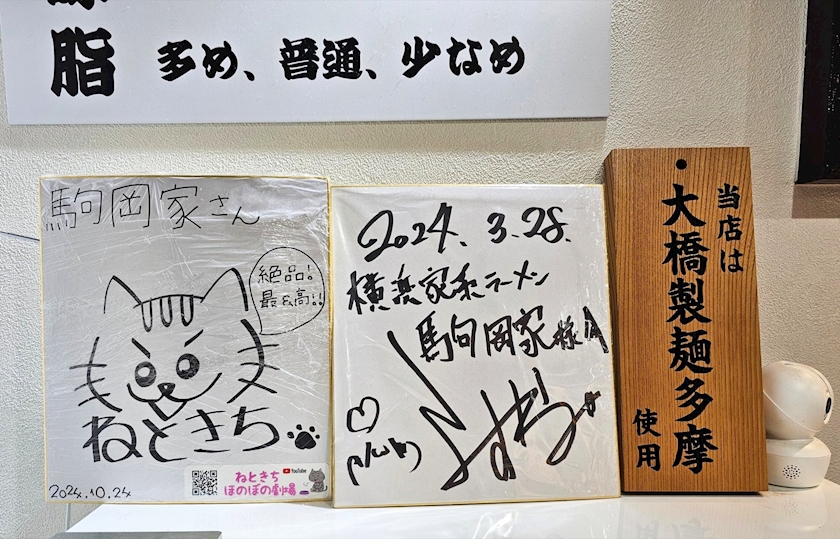 脂 多め、普通、少なめ
駒岡家さん
絶品!
最&高!!
ねときち
2024.10.24
YouTube
ねときち
ほのぼの劇場
2024.3.28.
横浜家系ラーメン
駒岡家様
当店は
大橋製麺多摩
使用